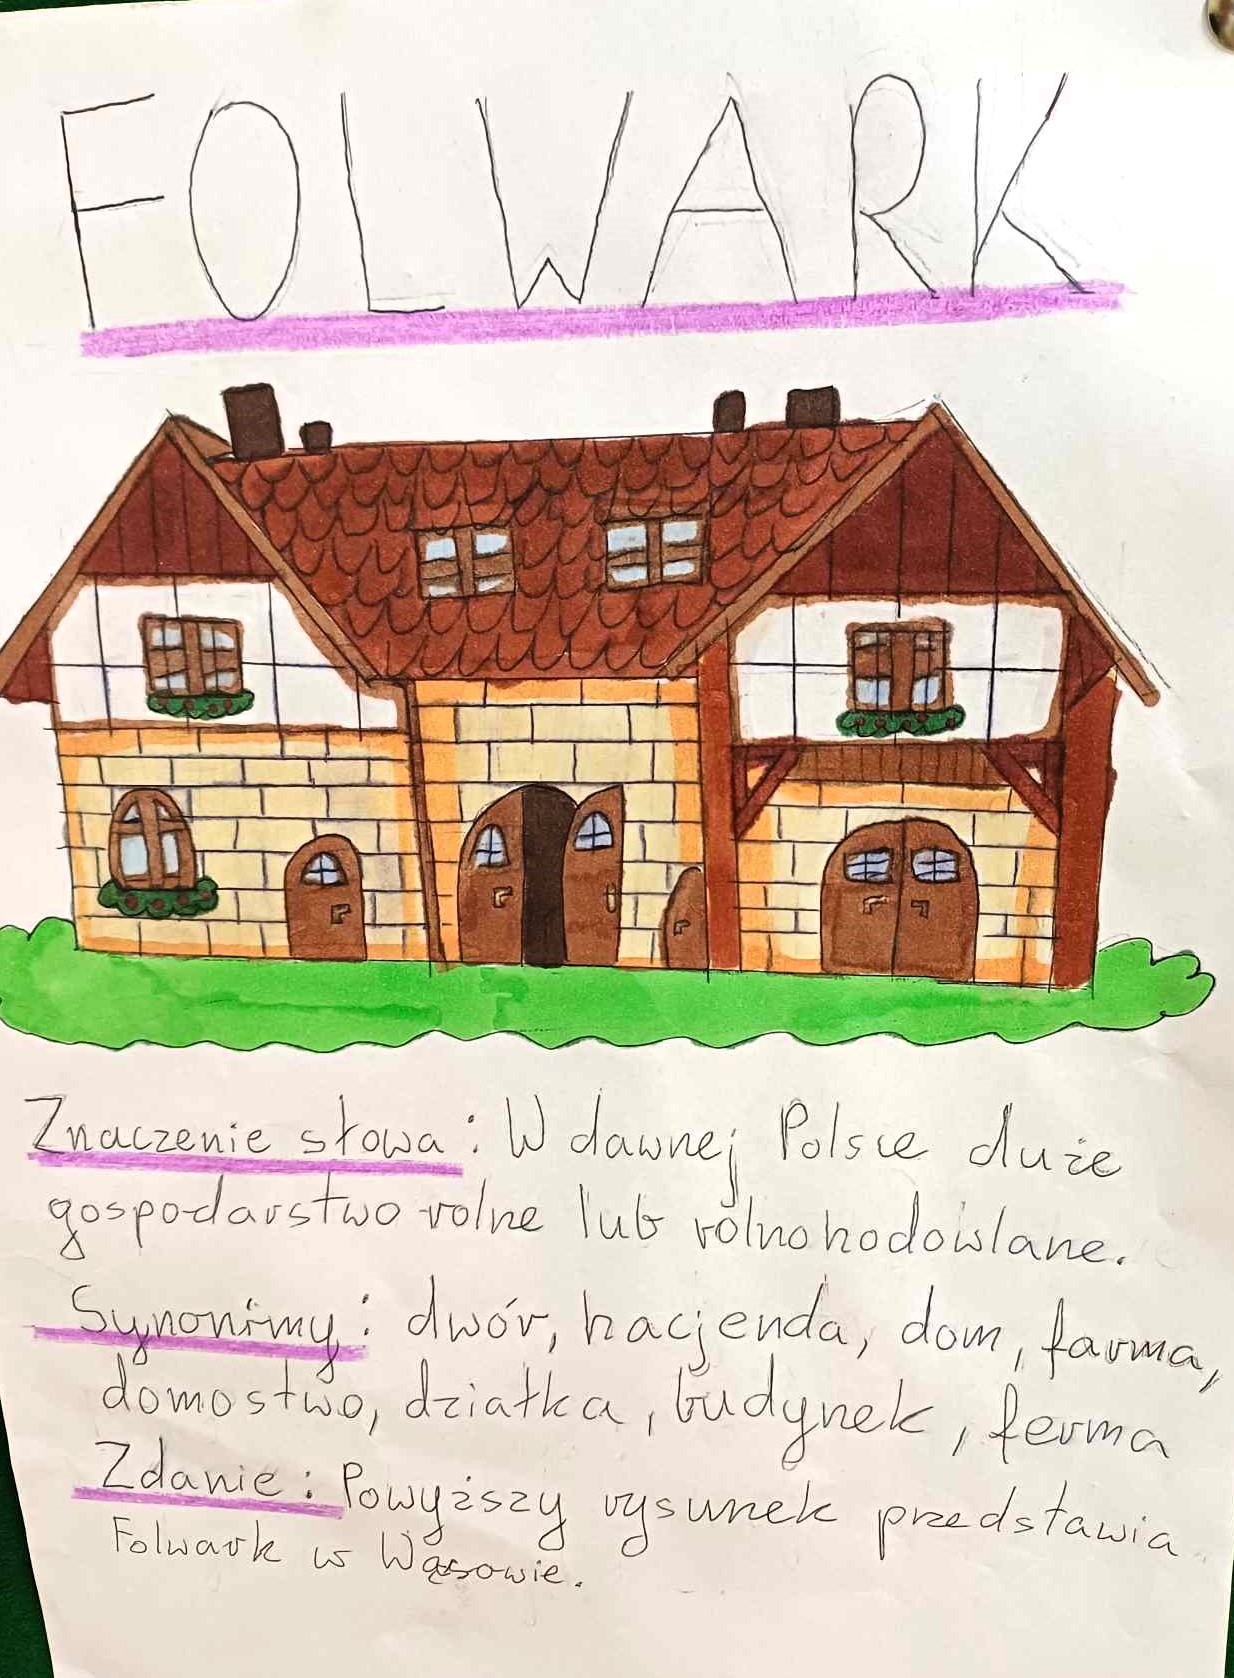 FOLWARK
Znaczenie słowa: W dawnej Polsce duże
gospodarstwo rolne lub rolnohodowlane.
Synonimy: dwór, hacjenda, dom, farma,
domostwo, działka, budynek, ferma
Zdanie: Powyższy rysunek przedstawia
Folwark w Wąsowie.